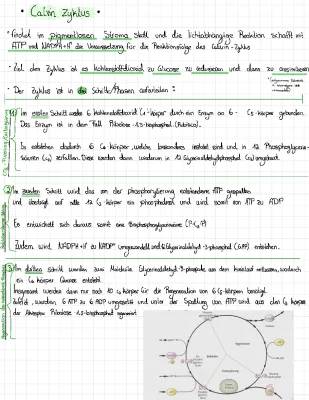 • Calvin Zyklus •
• findet im pigmentlosen Stroma statt und die lichtabhängige Reaktion schafft mit
ATP und NADPH+H⁺ die Voraussetzung für die Reaktionsfolge des Calvin-Zyklus
• Ziel des Zyklus ist es Kohlenstoffdioxid zu Glucose zu reduzieren und dann zu assimilieren
• Der Zyklus ist in drei Schritte/Phasen
1) Im ersten Schritt werden 6 Kohlenstoffdioxid C₁-Körper durch ein Enzym an 6 C₅-Körper gebunden.
Das Enzym ist in dem Fall Ribulose-1,5-bisphosphat (Rubisco).
Es entstehen dadurch 6 C₆ Körper, welche besonders instabil sind und in 12 Phosphoglycerin-
säuren (C₃) zerfallen. Diese werden dann wiederum in 12 Glycerinaldehydphosphat (C₃) umgesetzt.
2) Im zweiten Schritt wird das von der Phosphorylierung entstandene ATP gespalten
und überträgt auf alle 12 C₃ Körper ein Phosphatrest und wird somit von ATP zu ADP
Es entwickelt sich daraus somit eine Bisphosphoglycerinsäure
Zudem wird NADPH+H⁺ zu NADP⁺ umgewandelt und Glycerinaldehyd-3-phosphat (GAP) entstehen.
3) Im dritten Schritt werden zwei Moleküle Glycerinaldehyd-3-phosphat aus dem Kreislauf entlassen, wodurch
ein C₆ Körper Glucose entsteht
Insgesamt werden dann nur noch 10 C₃ Körper für die Regeneration von 6 C₅-Körpern benötigt.
werden 6 ATP zu 6 ADP umgesetzt und unter der Spaltung von ATP wird aus den C₃ Körpern
der Akzeptor Ribulose 1,5-bisphosphat regeneriert